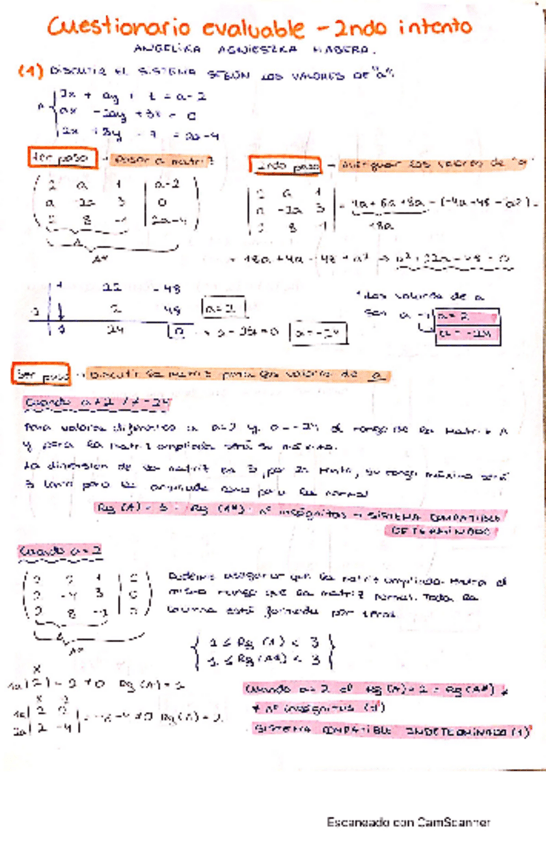 Cuestionario evaluable - 2ndo intento
ANGELIKA AGNIESZKA
(1) DISCUTIR EL SISTEMA SEGÚN LOS VALORES DE "a":
2x + ay + z = a-2
ax - 2ay + 3z = 0
2x + 8y - z = 2a-4
1er paso → Pasar a matriz
2ndo paso → averiguar los valores de "a"
2 a 1 | a-2
a -2a 3 | 0
2 8 -1 | 2a-4
A
A*
2 a 1
a -2a 3
2 8 -1
= 4a + 6a + 8a - (-4a + 48 - a²) =
18a
= 18a + 4a - 48 + a² → a² + 22a - 48 = 0
1 22 -48
2 2 48
1 24 0
a = 2
a = -24
* Los valores de a
son a
a = 2
a = -24
3er paso → Discutir la matriz para los valores de a
Cuando a ≠ 2 / ≠ -24
Para valores diferentes a a=2 y a=-24 el rango de la matriz A
y para la matriz ampliada será su máximo.
La dimensión de la matriz es 3, por lo tanto, su rango máximo será
3 tanto para la ampliada como para la normal
Rg (A) = 3 = Rg (A*) = nº incógnitas → SISTEMA COMPATIBLE
DETERMINADO
Cuando a = 2
2 2 1 | 0
2 -4 3 | 0
2 8 -1 | 0
A
A*
Podemos asegurar que la matriz ampliada tendrá el
mismo rango que la matriz normal. Toda la
columna está formada por ceros.
1 ≤ Rg (A) < 3
1 ≤ Rg (A*) < 3
x
1a |2| = 2 ≠ 0 Rg (A) = 1
1a | 2 2
2a | 2 -4
≠ 0 Rg (A) = 2
Cuando a = 2 el Rg (A) = 2 = Rg (A*)
≠ nº incógnitas (3)
SISTEMA COMPATIBLE INDETERMINADO (1)
Escaneado con CamScanner